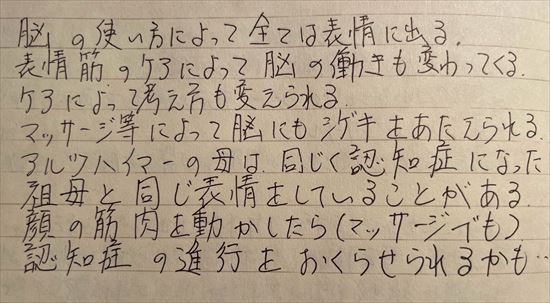 脳の使い方によって全ては表情に出る。
表情筋のケアによって脳の働きも変わってくる。
ケアによって考え方も変えられる。
マッサージ等によって脳にもシゲキをあたえられる。
アルツハイマーの母は、同じく認知症になった
祖母と同じ表情をしていることがある。
顔の筋肉を動かしたら(マッサージでも)
認知症の進行をおくらせられるかも…